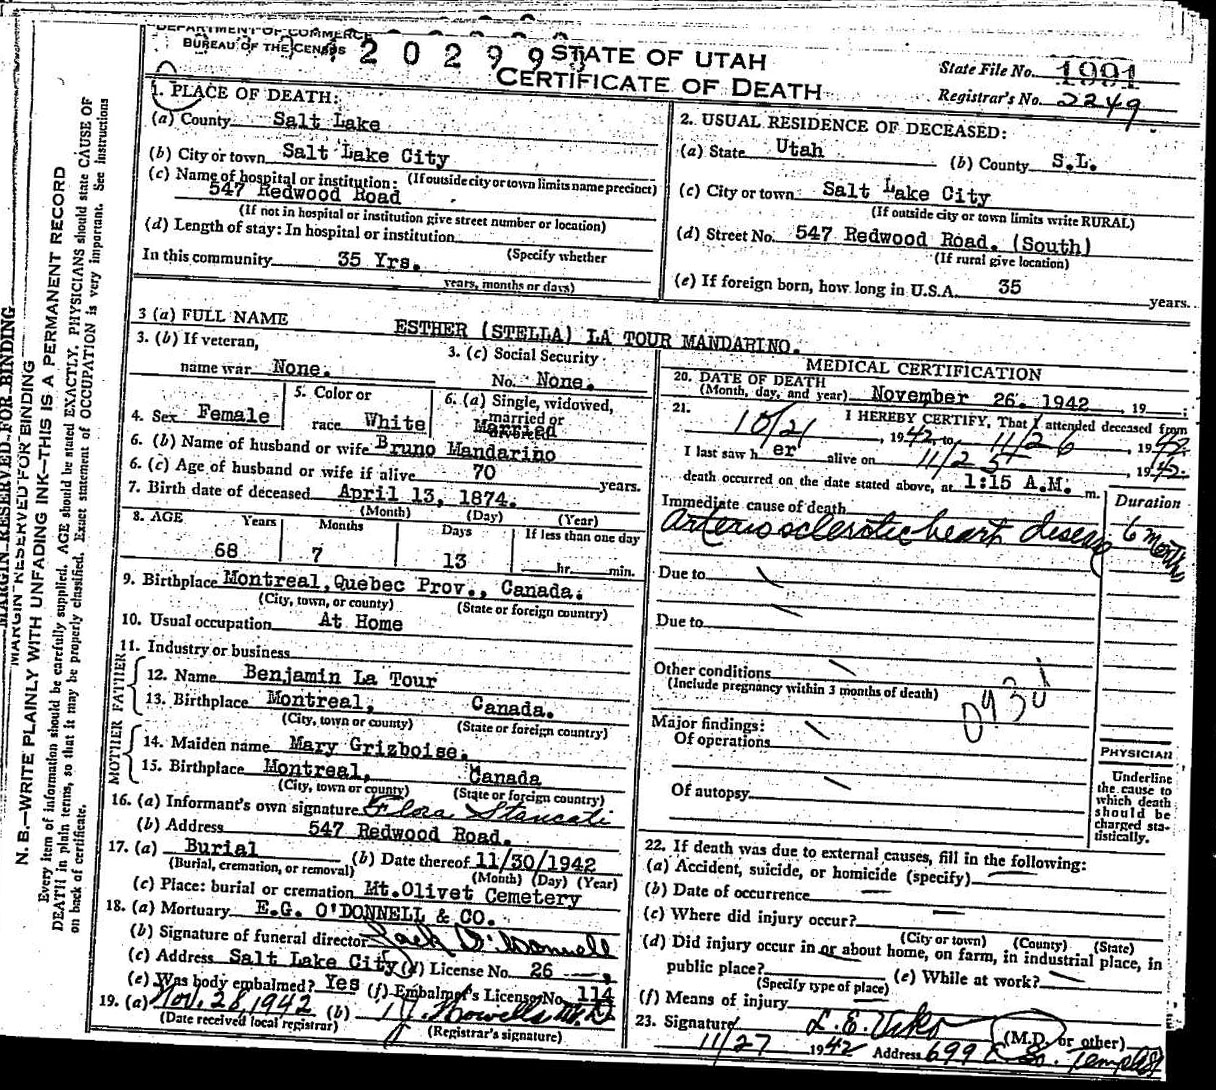 DEPARTMENT OF COMMERCE
BUREAU OF THE CENSUS
2 0 2 9 9
STATE OF UTAH
CERTIFICATE OF DEATH
State File No. 1991
Registrar's No. 2249
1. PLACE OF DEATH:
(a) County Salt Lake
(b) City or town Salt Lake City
(c) Name of hospital or institution: (If outside city or town limits name precinct)
547 Redwood Road
(If not in hospital or institution give street number or location)
(d) Length of stay: In hospital or institution
(Specify whether
In this community 35 Yrs.
years, months or days)
2. USUAL RESIDENCE OF DECEASED:
(a) State Utah (b) County S.L.
(c) City or town Salt Lake City
(If outside city or town limits write RURAL)
(d) Street No. 547 Redwood Road. (South)
(If rural give location)
(e) If foreign born, how long in U.S.A. 35 years.
3 (a) FULL NAME ESTHER (STELLA) LA TOUR MANDARINO.
3. (b) If veteran, name war None.
3. (c) Social Security No. None.
4. Sex Female
5. Color or race White
6. (a) Single, widowed, married or Married
6. (b) Name of husband or wife Bruno Mandarino
6. (c) Age of husband or wife if alive 70 years.
7. Birth date of deceased April 13, 1874.
(Month) (Day) (Year)
8. AGE Years Months Days If less than one day
68 7 13 hr. min.
9. Birthplace Montreal, Quebec Prov., Canada.
(City, town, or county) (State or foreign country)
10. Usual occupation At Home
11. Industry or business
FATHER
12. Name Benjamin La Tour
13. Birthplace Montreal, Canada.
(City, town or county) (State or foreign country)
MOTHER
14. Maiden name Mary Grizboise.
15. Birthplace Montreal, Canada
(City, town or county) (State or foreign country)
16. (a) Informant's own signature Flora Stancati
(b) Address 547 Redwood Road.
17. (a) Burial (b) Date thereof 11/30/1942
(Burial, cremation, or removal) (Month) (Day) (Year)
(c) Place: burial or cremation Mt.Olivet Cemetery
18. (a) Mortuary E.G. O'DONNELL & CO.
(b) Signature of funeral director Jack O'Donnell
(c) Address Salt Lake City (d) License No. 26
(e) Was body embalmed? Yes (f) Embalmer's License No. 114
19. (a) Nov. 28, 1942 (b)
(Date received local registrar) (Registrar's signature)
MEDICAL CERTIFICATION
20. DATE OF DEATH
(Month, day, and year) November 26. 1942, 19
21. I HEREBY CERTIFY, That I attended deceased from
10/21, 1942, to 11/26, 1942.
I last saw h er alive on 11/25, 1942.
death occurred on the date stated above, at 1:15 A.M. m.
Immediate cause of death Duration
Arteriosclerotic heart disease 6 month
Due to
Due to
Other conditions
(Include pregnancy within 3 months of death)
Major findings:
Of operations
Of autopsy
PHYSICIAN
Underline
the cause to
which death
should be
charged sta-
tistically.
22. If death was due to external causes, fill in the following:
(a) Accident, suicide, or homicide (specify)
(b) Date of occurrence
(c) Where did injury occur?
(City or town) (County) (State)
(d) Did injury occur in or about home, on farm, in industrial place, in
public place? (e) While at work?
(Specify type of place)
(f) Means of injury
23. Signature L. E. Viko (M.D. or other)
11/27 1942 Address 699 E. So. Temple St
MARGIN RESERVED FOR BINDING
MARGIN RESERVED FOR BINDING
N. B.—WRITE PLAINLY WITH UNFADING INK—THIS IS A PERMANENT RECORD
Every item of information should be carefully supplied. AGE should be stated EXACTLY. PHYSICIANS should state CAUSE OF
DEATH in plain terms, so that it may be properly classified. Exact statement of OCCUPATION is very important. See instructions
on back of certificate.